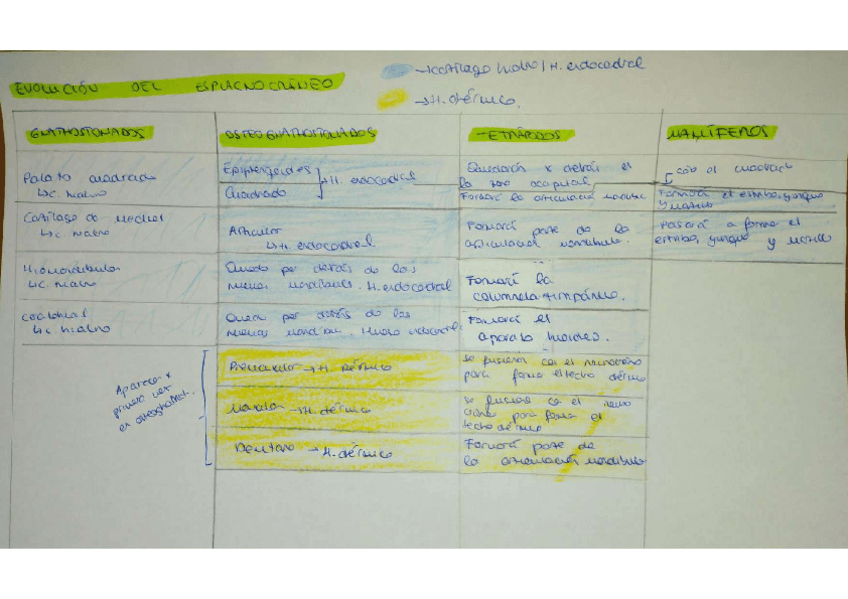 EVOLUCIÓN DEL ESPLACNOCRÁNEO
→ cartílago hialino / H. endocondral
→ H. dérmico.
GNATHOSTOMADOS
OSTEOGNATHOSTOMADOS
TETRÁPODOS
MAMÍFEROS
Palato cuadrado
↳ C. hialino
Epipterigoides
Cuadrado
→ H. endocondral
Quedará x detrás
la zona occipital
Formará la articulación
con el cuadrado
Formará el estribo, yunque
y martillo
Cartílago de Meckel
↳ C. hialino
Articular
↳ H. endocondral
Formará parte de la
articulación mandibular.
Pasará a formar el
estribo, yunque y martillo
Hiomandibular
↳ C. hialino
Queda por detrás de las
nuevas mandíbulas. H. endocondral
Formará la
columnela timpánica.
↳ C. hialino
Queda por detrás de las
nuevas
Formará el
aparato hioideo.
Aparecen x
primera vez
en osteognathost.
Premaxilar → H. dérmico
se fusiona con el
para formar el techo dérmico
Maxilar → H. dérmico
se fusiona con el
para formar el
techo dérmico
Dentario → H. dérmico
Formará parte de
la articulación mandibular